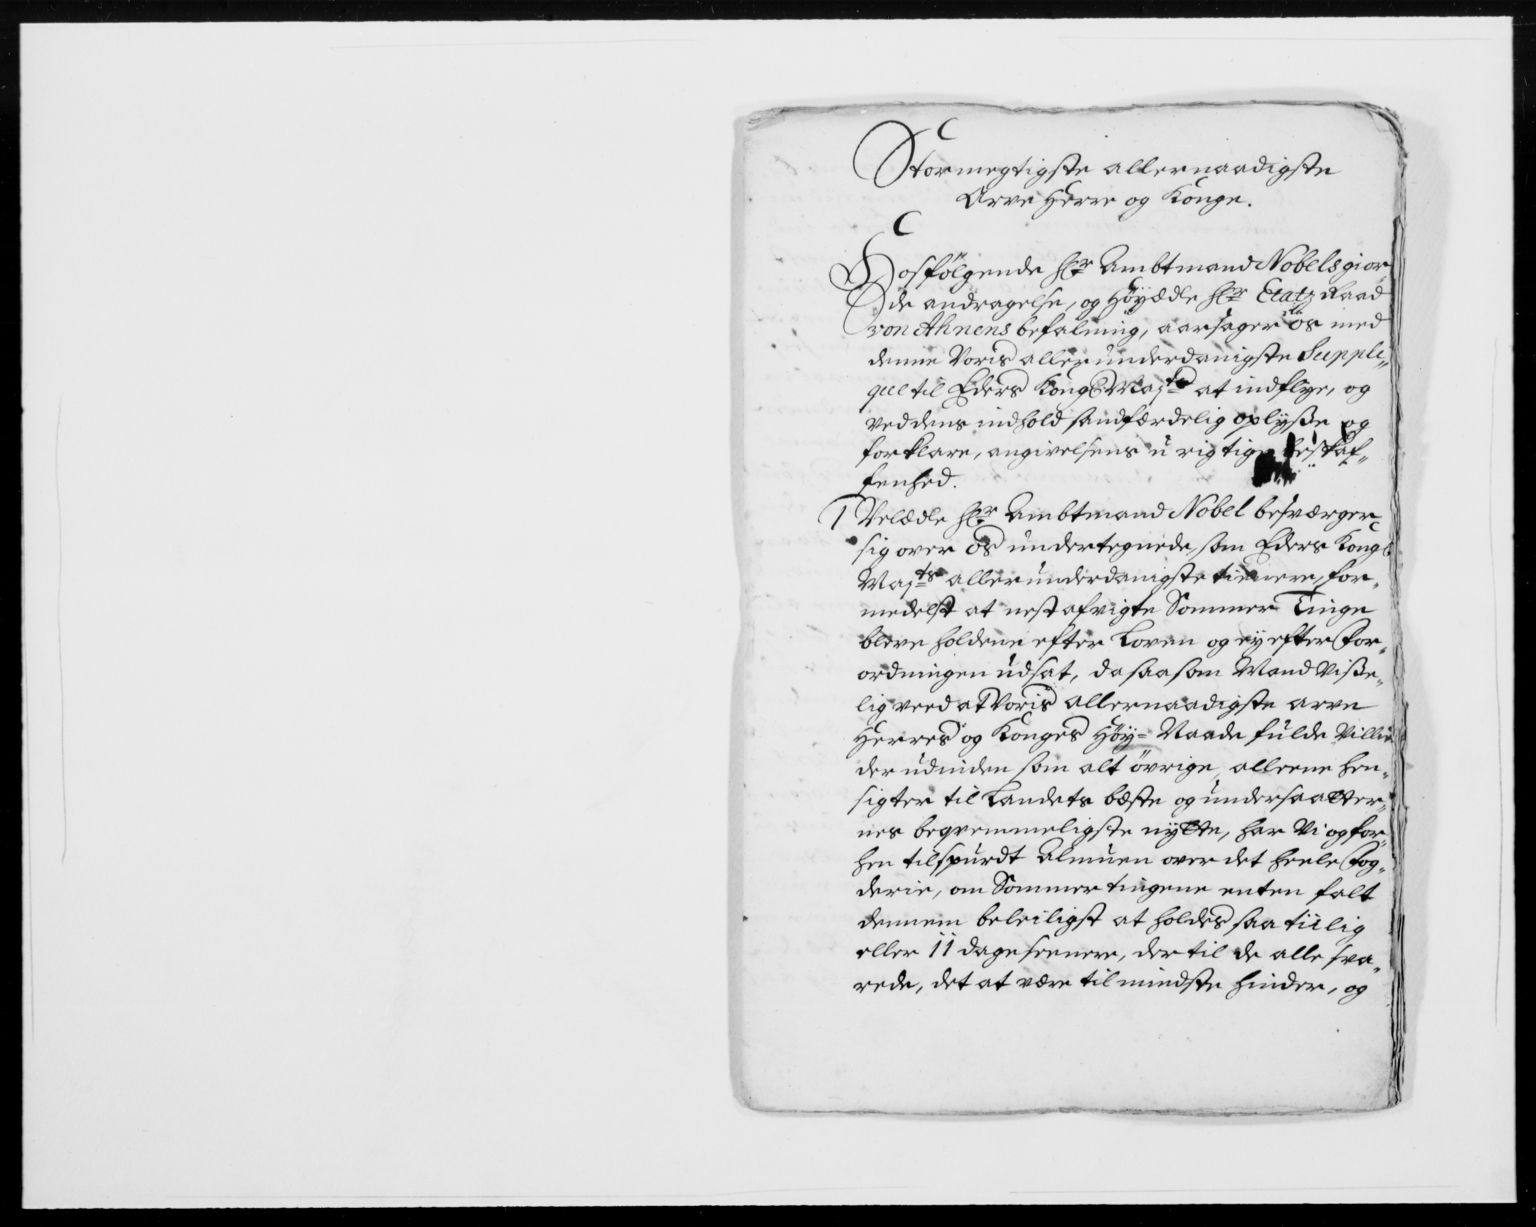 Stormegtigste allernaadigste
Arve Herre og Konge.
Hosfølgende Hr Ambtmand Nobels gior
de andragelse, og Høyædle Hr Etatz Raad
von Ahnens befalning, aarsager os med
denne Voris allerunderdanigste Suppli„
que til Eders Kongl Majts at indflye, og
ved dens indhold sandfærdelig oplyße og
forklare, angivelsens u rigtige beskaf„
fenhed.
1 Velædle Hr Ambtmand Nobel besværger
sig over os undertegnede som Eders Kongl
Majts allerunderdanigste tienere, for„
medelst at nest afvigte Sommer Tinge
bleve holdene efter Loven og ey efter For„
ordningen udsat, da saasom Mand viße„
lig veed at Voris allernaadigste arve
Herres og Konges Høy= Naade fulde Villie
der udinden som alt øvrige, alleene hen„
sigter til Landets bæste og undersaatter„
nes beqvemmeligste nytte, har Vi og for„
hen tilspurdt Almuen over det heele Fog„
derie, om Sommer tingene enten falt
dennem beleiligst at holdes saa tiilig
eller 11 dage seenere, der til de alle sva„
rede, det at være til mindste hinder, og